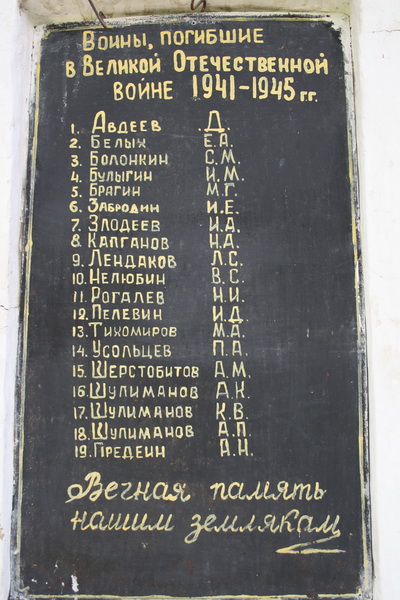 Воины, погибшие
в Великой Отечественной
войне 1941-1945 г.г.
1. Авдеев .Д.
2. Белых Е.А.
3. Болонкин С.М.
4. Булыгин И.М.
5. Брагин М.Г.
6. Забродин И.Е.
7. Злодеев И.А.
8. Капганов Н.А.
9. Лендаков Л.С.
10. Нелюбин В.С.
11. Рогалев Н.И.
12. Пелевин И.Д.
13. Тихомиров М.А.
14. Усольцев П.А.
15. Шерстобитов А.М.
16. Шулиманов А.К.
17. Шулиманов К.В.
18. Шулиманов А.П.
19. Предеин А.Н.
Вечная память
нашим землякам